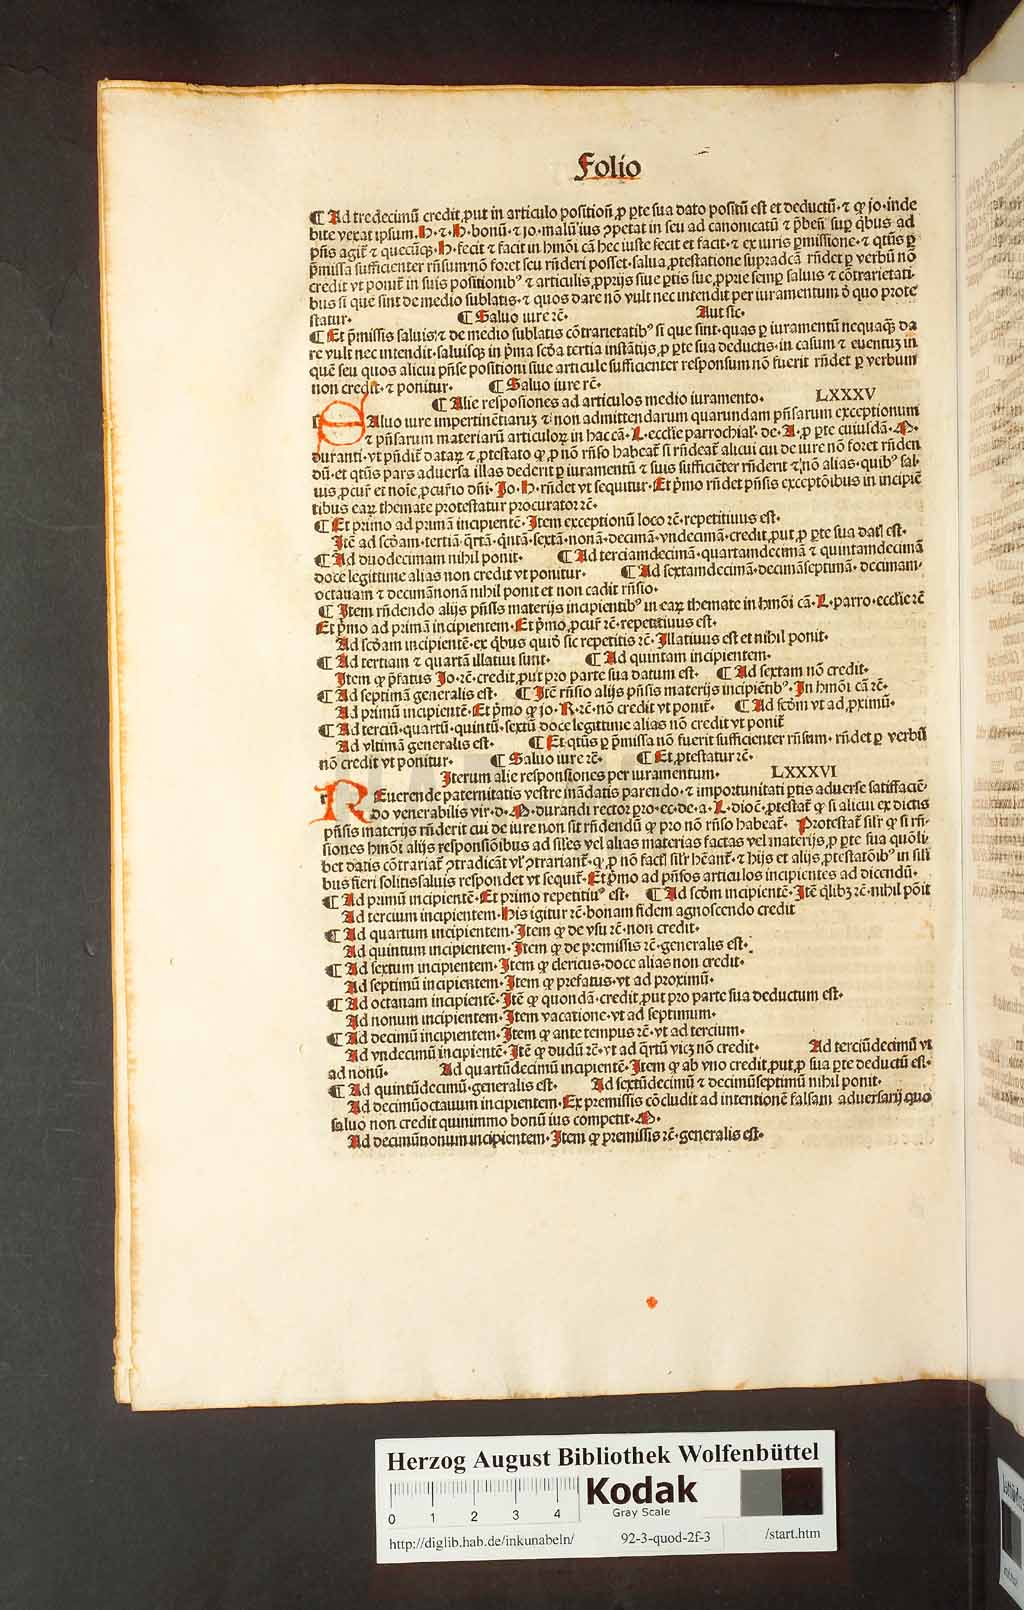 Folio
¶ Ad tredecimū credit ꝓut in articulo position̄ ꝓ ꝑte sua dato positū est et deductū · ⁊ ꝙ jo · inde
bite vexat ipsum · H · ⁊ · H · bonū · ⁊ jo · malū ius ꝯpetat in seu ad canonicatū ⁊ p̄ben̄ suꝑ q̄bus ad
p̄ns agit̄ ⁊ quecūqꝫ · H · fecit ⁊ facit in hmōi cā hec iuste fecit et facit · ⁊ ex iuris ꝑmissione · ⁊ qtūs ꝑ
p̄missa sufficienter rn̄sum nō foret seu rn̄deri posset · salua ꝓtestatione supradcā rn̄det ꝑ verbū nō
credit vt ponit̄ in suis positionibꝰ ⁊ articulis ꝓprijs siue ꝑtis sue ꝓprie semꝑ saluis ⁊ cōtrarietati-
bus si que sint de medio sublatis · ⁊ quos dare nō vult nec intendit per iuramentum ō quo prote
statur · ¶ Saluo iure ꝛc̄ · Aut sic ·
¶ Et p̄missis saluis ⁊ de medio sublatis cōtrarietatibꝰ si que sint · quas ꝑ iuramentū nequaqꝫ da
re vult nec intendit · saluisqꝫ in p̄ma scōa tertia instātijs ꝓ ꝑte sua deductis · in casum ⁊ euentuꝫ in
quē seu quos alicui pn̄se positioni siue articule sufficienter responsum nō fuerit rn̄det ꝑ verbum
non credit · ⁊ ponitur · ¶ Saluo iure ꝛc̄ ·
¶ Alie resposiones ad articulos medio iuramento · LXXXV
SAluo iure impertinētiaruꝫ ⁊ non admittendarum quarundam pn̄sarum exceptionum
⁊ pn̄sarum materiarū articuloꝝ in hac cā · L · eccl̄ie parrochial̄ · de · A · ꝓ ꝑte cuiusdā · M ·
duranti · vt pn̄dit̄ dataꝝ ⁊ ꝓtestato ꝙ ꝓ nō rn̄so habeat̄ si rn̄deat̄ alicui cui de iure nō foret rn̄den
dū · et qtūs pars aduersa illas dederit ꝑ iuramentū ⁊ suis sufficiēter rn̄derit ⁊ nō alias · quibꝰ sal-
uis ꝓcur̄ et noīe ꝓcur̄io dn̄i · Jo · H · rn̄det vt sequitur · Et p̄mo rn̄det pn̄sis exceptōibus in incipiē
tibus eaꝝ themate protestatur procurator ꝛc̄ ·
¶ Et primo ad primā incipientē · Item exceptionū loco ꝛc̄ · repetitiuus est ·
Itē ad scōam · tertiā · q̄rtā · q̄ntā · sextā · nonā · decimā · vndecimā · credit ꝓut ꝓ ꝑte sua datl̄ est ·
¶ Ad duodecimam nihil ponit · ¶ Ad terciamdecimā · quartamdecimā ⁊ quintamdecimā
doce legittime alias non credit vt ponitur · ¶ Ad sextamdecimā · decimāseptimā · decimam-
octauam ⁊ decimānonā nihil ponit et non cadit rn̄sio ·
¶ Item rn̄dendo alijs pn̄sis materijs incipientibꝰ in eaꝝ themate in hmōi cā · L · parro · eccl̄ie ꝛc̄
Et p̄mo ad primā incipientem · Et p̄mo ꝓcur̄ ꝛc̄ · repetitiuus est ·
Ad scōam incipientē · ex q̄bus quid sic repetitis ꝛc̄ · Illatiuus est et nihil ponit ·
¶ Ad tertiam ⁊ quartā illatiui sunt · ¶ Ad quintam incipientem ·
Item ꝙ p̄fatus Jo · ꝛc̄ · credit ꝓut pro parte sua datum est · ¶ Ad sextam nō credit ·
¶ Ad septimā generalis est · ¶ Itē rn̄sio alijs pn̄sis materijs incipiētibꝰ · In hmōi cā ꝛc̄ ·
Ad primū incipientē · Et p̄mo ꝙ jo · R · ꝛc̄ · nō credit vt ponit̄ · ¶ Ad scōm vt ad ꝓximū ·
¶ Ad terciū · quartū · quintū · sextū doce legittime alias nō credit vt ponit̄
Ad vltimā generalis est · ¶ Et qtūs ꝑ p̄missa nō fuerit sufficienter rn̄sum · rn̄det ꝑ verbū
nō credit vt ponitur · ¶ Saluo iure ꝛc̄ · ¶ Et ꝓtestatur ꝛc̄ ·
Iterum alie responsiones per iuramentum · LXXXVI
REuerende paternitatis vestre mādatis parendo · ⁊ importunitati ꝑtis aduerse satisfaciē-
do venerabilis vir · d · M · durandi rector ꝑro · ec · de · a · L · dioc̄ · ꝓtestat̄ ꝙ si alicui ex dictis
pn̄sis materijs rn̄derit cui de iure non sit rn̄dendū ꝙ pro nō rn̄so habeat̄ · Protestat̄ silr̄ ꝙ si rn̄-
siones hmōi alijs responsiōibus ad sil̄es vel alias materias factas vel materijs ꝓ ꝑte sua quoli-
bet datis cōtrariat̄ ꝯtradicāt vl̓ ꝯtrariant̄ · ꝙ ꝓ nō factl̄ silr̄ hēant̄ · ⁊ hijs et alijs ꝓtestatōibꝰ in sili
bus fieri solitis saluis respondet vt sequit̄ · Et p̄mo ad pn̄sos articulos incipientes ad dicendū ·
¶ Ad primū incipientē · Et primo repetitiuꝰ est · ¶ Ad scōm incipientē · Itē q̄libꝫ ꝛc̄ · nihil pōit
Ad tercium incipientem · His igitur ꝛc̄ · bonam fidem agnoscendo credit
¶ Ad quartum incipientem · Item ꝙ de vsu ꝛc̄ · non credit ·
Ad quintum incipientem · Item ꝙ de premissis ꝛc̄ · generalis est ·
¶ Ad sextum incipientem · Item ꝙ clericus · doce alias non credit ·
Ad septimū incipientem · Item ꝙ prefatus · vt ad proximū ·
¶ Ad octauam incipientē · Itē ꝙ quondā · credit ꝓut pro parte sua deductum est ·
Ad nonum incipientem · Item vacatione · vt ad septimum ·
¶ Ad decimū incipientem · Item ꝙ ante tempus ꝛc̄ · vt ad tercium ·
Ad vndecimū incipientē · Itē ꝙ dudū ꝛc̄ · vt ad q̄rtū vicꝫ nō credit · Ad terciūdecimū vt
ad nonū · Ad quartūdecimū incipientē · Item ꝙ ab vno credit ꝓut ꝓ sua ꝑte deductū est ·
¶ Ad quintūdecimū · generalis est · Ad sextūdecimū ⁊ decimūseptimū nihil ponit ·
Ad decimūoctauum incipientem · Ex premissis cōcludit ad intentionē falsam aduersarij quo
saluo non credit quinimmo bonū ius competit · M ·
Ad decimūnonum incipientem · Item ꝙ premissis ꝛc̄ · generalis est ·
Herzog August Bibliothek Wolfenbüttel
0 1 2 3 4
Kodak
Gray Scale
http://diglib.hab.de/inkunabeln/ 92-3-quod-2f-3 /start.htm